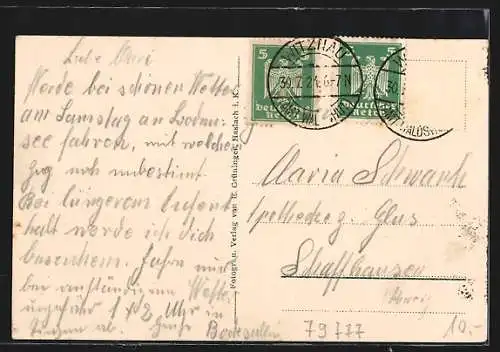 Liebe Mari
Werde bei schönem Wetter
am Samstag an Bodensee
fahren, mit welchem
Zug noch unbestimt
Bei längerem Aufent
halt werde ich dich
besuchen. Fahre nur
bei anständigem Wetter
ungefähr 1 Uhr in
ab.
Fotogr. u. Verlag von E. Grüninger, Haslach i. K.
5
5
Deutsches
Reich
Deutsches
Reich
30.7.24.6-7N
Maria Schwank
Apotheke z. Glas
Schaffhausen
79777
10.-